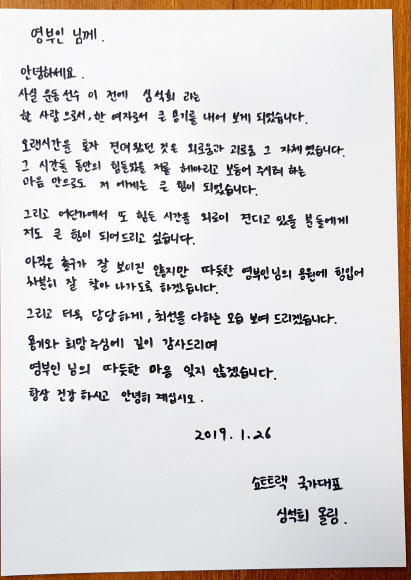 영부인 님께.
안녕하세요.
사실 운동선수 이 전에 심석희 라는
한 사람으로서, 한 여자로서 큰 용기를 내어 보게 되었습니다.
오랜시간을 혼자 견뎌왔던 것은 외로움과 괴로움 그 자체였습니다.
그 시간들 동안의 힘들었을 저를 헤아리고 보듬어 주시려 하는
마음 만으로도 저 에게는 큰 힘이 되었습니다.
그리고 어딘가에서 또 힘든 시간을 외로이 견디고 있을 분들에게
저도 큰 힘이 되어드리고 싶습니다.
아직은 출구가 잘 보이진 않지만 따듯한 영부인님의 응원에 힘입어
차분히 잘 찾아 나가도록 하겠습니다.
그리고 더욱 당당하게, 최선을 다하는 모습 보여 드리겠습니다.
용기와 희망 주심에 깊이 감사드리며
영부인 님의 따듯한 마음 잊지 않겠습니다.
항상 건강 하시고 안녕히 계십시오.
2019. 1. 26
쇼트트랙 국가대표
심석희 올림.